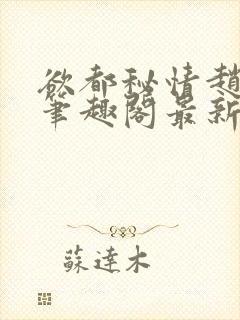 欲都秘情趙
筆趣閣最新
蘇達木